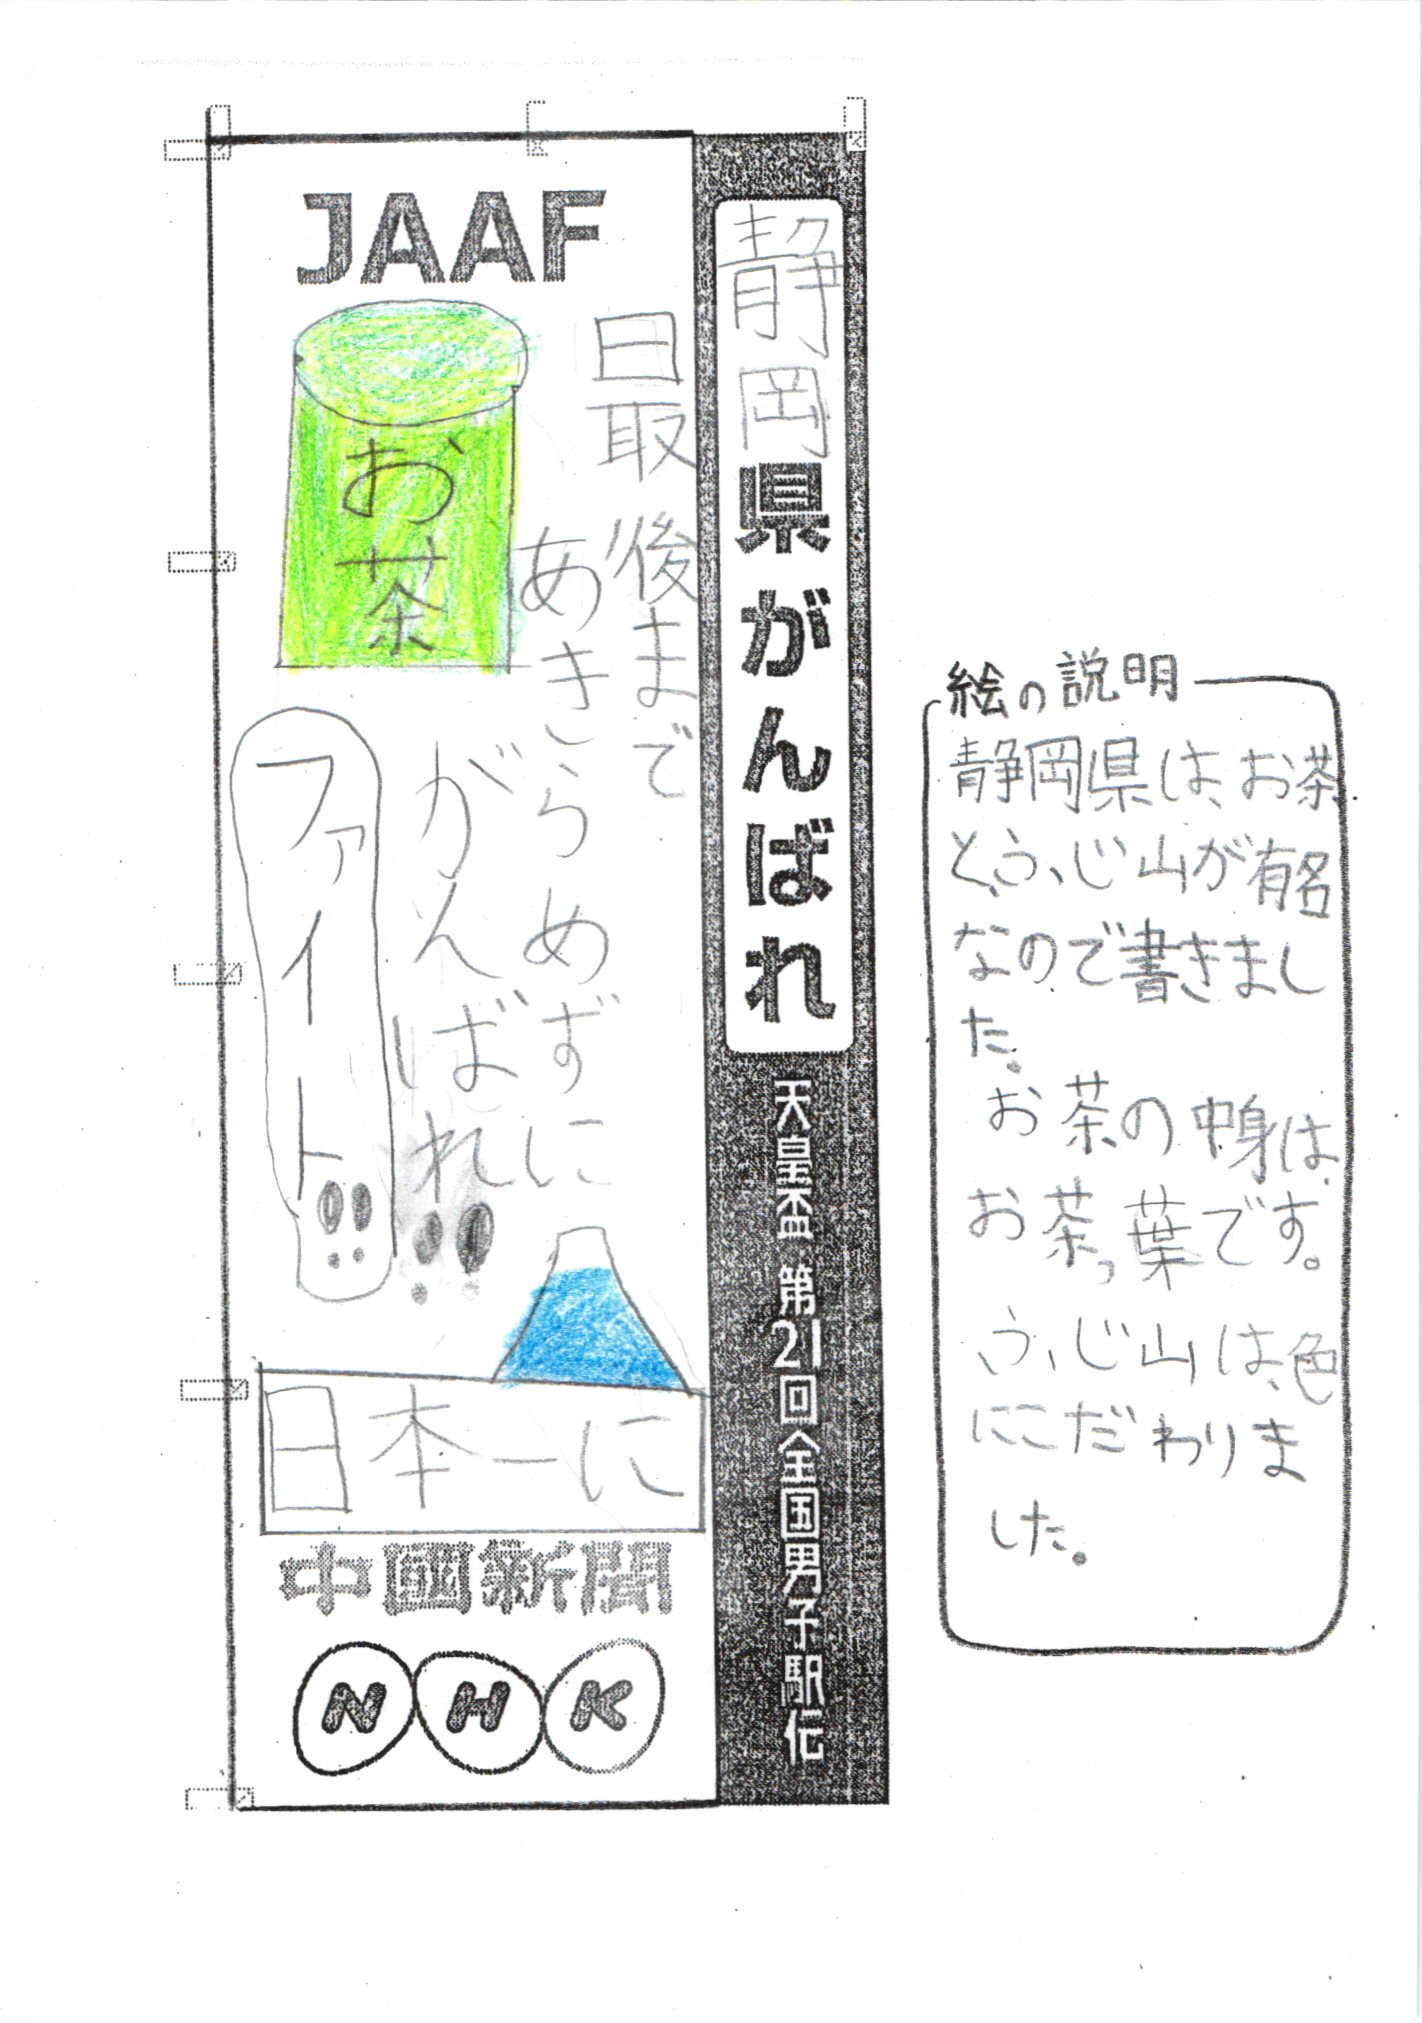 JAAF
静岡県がんばれ
天皇盃 第21回全国男子駅伝
お茶
最後まで
あきらめずに
がんばれ
ファイト
日本一に
中國新聞
NHK
絵の説明
静岡県は、お茶
と、ふじ山が有名
なので書きまし
た。
お茶の中身は、
お茶っ葉です。
ふじ山は、色
にこだわりま
した。